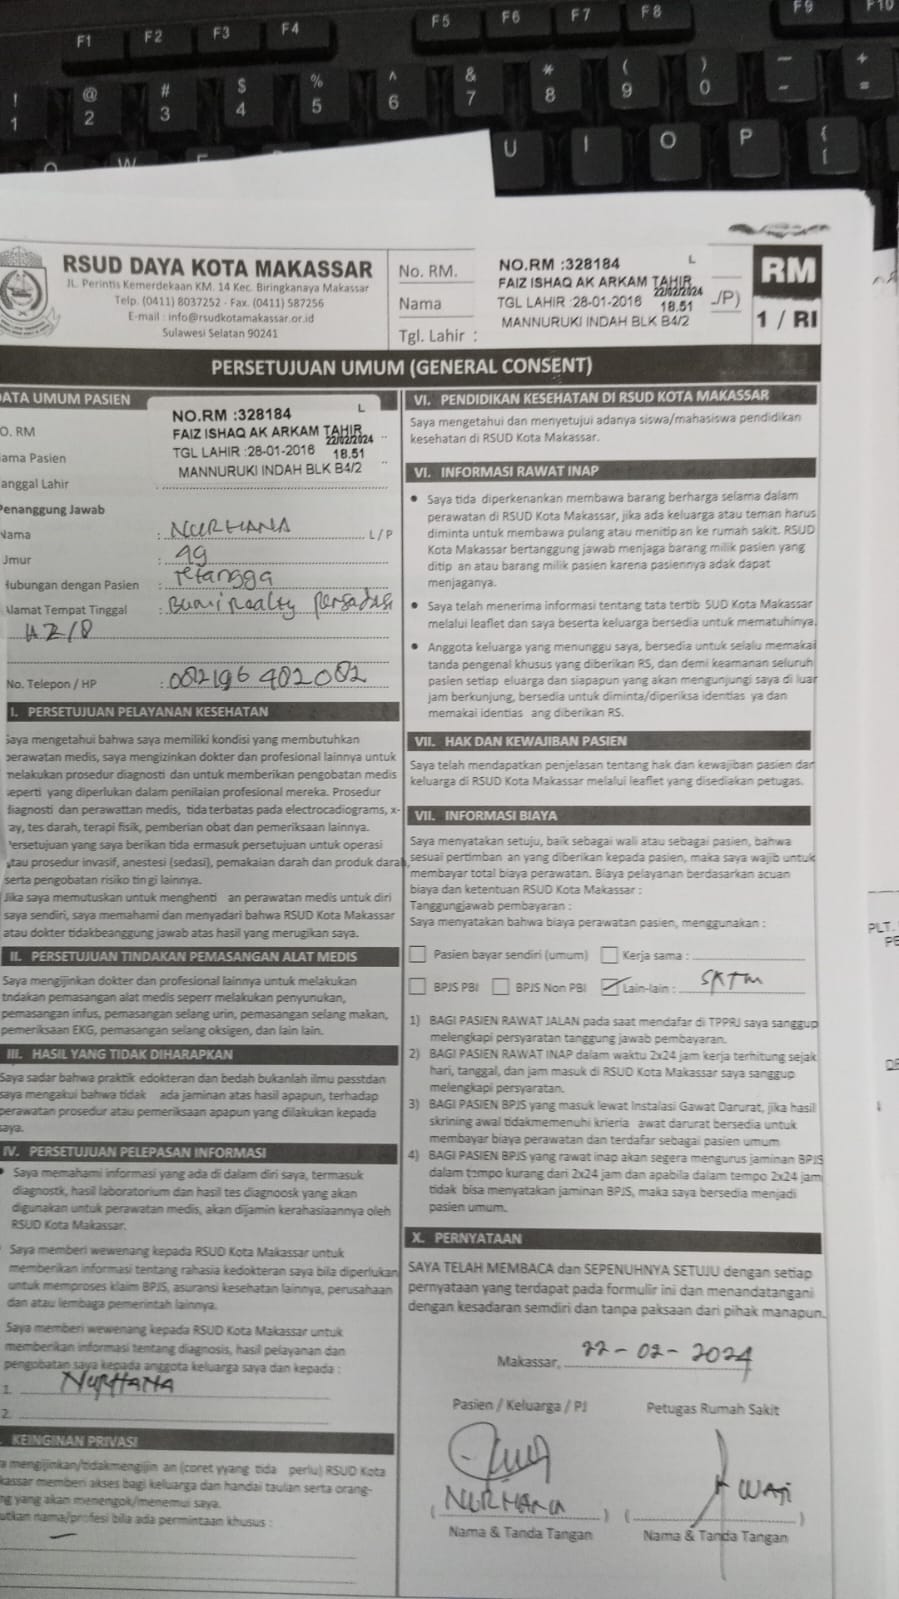 F1 F2 F3 F4 F5 F6 F7 F8 F9 F10
! @ # $ % ^ & * ( ) — +
1 2 3 4 5 6 7 8 9 0 - =
W U I O P { [
RSUD DAYA KOTA MAKASSAR
JL. Perintis Kemerdekaan KM. 14 Kec. Biringkanaya Makassar
Telp. (0411) 8037252 - Fax. (0411) 587256
E-mail : info@rsudkotamakassar.or.id
Sulawesi Selatan 90241
No. RM.
Nama
Tgl. Lahir :
NO.RM :328184 L
FAIZ ISHAQ AK ARKAM TAHIR
22/02/2024
TGL LAHIR :28-01-2016 18.51
MANNURUKI INDAH BLK B4/2
/P)
RM
1 / RI
PERSETUJUAN UMUM (GENERAL CONSENT)
DATA UMUM PASIEN
O. RM
ama Pasien
anggal Lahir
NO.RM :328184 L
FAIZ ISHAQ AK ARKAM TAHIR
22/02/2024
TGL LAHIR :28-01-2016 18.51
MANNURUKI INDAH BLK B4/2
Penanggung Jawab
Nama : NURHANA L / P
Umur : 49
Hubungan dengan Pasien : Tetangga
Alamat Tempat Tinggal : Bumi Realty Persadas
HZ/8
No. Telepon / HP : 082196402082
I. PERSETUJUAN PELAYANAN KESEHATAN
Saya mengetahui bahwa saya memiliki kondisi yang membutuhkan
perawatan medis, saya mengizinkan dokter dan profesional lainnya untuk
melakukan prosedur diagnosti dan untuk memberikan pengobatan medis
seperti yang diperlukan dalam penilaian profesional mereka. Prosedur
diagnosti dan perawattan medis, tida terbatas pada electrocadiograms, x-
ay, tes darah, terapi fisik, pemberian obat dan pemeriksaan lainnya.
Persetujuan yang saya berikan tida ermasuk persetujuan untuk operasi
atau prosedur invasif, anestesi (sedasi), pemakaian darah dan produk darah,
serta pengobatan risiko tin gi lainnya.
Jika saya memutuskan untuk menghenti an perawatan medis untuk diri
saya sendiri, saya memahami dan menyadari bahwa RSUD Kota Makassar
atau dokter tidakbeanggung jawab atas hasil yang merugikan saya.
II. PERSETUJUAN TINDAKAN PEMASANGAN ALAT MEDIS
Saya mengijinkan dokter dan profesional lainnya untuk melakukan
tndakan pemasangan alat medis seperr melakukan penyunukan,
pemasangan infus, pemasangan selang urin, pemasangan selang makan,
pemeriksaan EKG, pemasangan selang oksigen, dan lain lain.
III. HASIL YANG TIDAK DIHARAPKAN
Saya sadar bahwa praktik edokteran dan bedah bukanlah ilmu passtdan
saya mengakui bahwa tidak ada jaminan atas hasil apapun, terhadap
perawatan prosedur atau pemeriksaan apapun yang dilakukan kepada
saya.
IV. PERSETUJUAN PELEPASAN INFORMASI
• Saya memahami informasi yang ada di dalam diri saya, termasuk
diagnostk, hasil laboratorium dan hasil tes diagnoosk yang akan
digunakan untuk perawatan medis, akan dijamin kerahasiaannya oleh
RSUD Kota Makassar.
Saya memberi wewenang kepada RSUD Kota Makassar untuk
memberikan informasi tentang rahasia kedokteran saya bila diperlukan
untuk memproses klaim BPJS, asuransi kesehatan lainnya, perusahaan
dan atau lembaga pemerintah lainnya.
Saya memberi wewenang kepada RSUD Kota Makassar untuk
memberikan informasi tentang diagnosis, hasil pelayanan dan
pengobatan saya kepada anggota keluarga saya dan kepada :
1. NURHANA
2.
KEINGINAN PRIVASI
a mengijinkan/tidakmengijin an (coret yyang tida perlu) RSUD Kota
kassar memberi akses bagi keluarga dan handai taulan serta orang-
ng yang akan menengok/menemui saya.
utkan nama/profesi bila ada permintaan khusus :
VI. PENDIDIKAN KESEHATAN DI RSUD KOTA MAKASSAR
Saya mengetahui dan menyetujui adanya siswa/mahasiswa pendidikan
kesehatan di RSUD Kota Makassar.
VI. INFORMASI RAWAT INAP
• Saya tida diperkenankan membawa barang berharga selama dalam
perawatan di RSUD Kota Makassar, jika ada keluarga atau teman harus
diminta untuk membawa pulang atau menitip an ke rumah sakit. RSUD
Kota Makassar bertanggung jawab menjaga barang milik pasien yang
ditip an atau barang milik pasien karena pasiennya adak dapat
menjaganya.
• Saya telah menerima informasi tentang tata tertib SUD Kota Makassar
melalui leaflet dan saya beserta keluarga bersedia untuk mematuhinya.
• Anggota keluarga yang menunggu saya, bersedia untuk selalu memakai
tanda pengenal khusus yang diberikan RS, dan demi keamanan seluruh
pasien setiap eluarga dan siapapun yang akan mengunjungi saya di luar
jam berkunjung, bersedia untuk diminta/diperiksa identias ya dan
memakai identias ang diberikan RS.
VII. HAK DAN KEWAJIBAN PASIEN
Saya telah mendapatkan penjelasan tentang hak dan kewajiban pasien dan
keluarga di RSUD Kota Makassar melalui leaflet yang disediakan petugas.
VII. INFORMASI BIAYA
Saya menyatakan setuju, baik sebagai wali atau sebagai pasien, bahwa
sesuai pertimban an yang diberikan kepada pasien, maka saya wajib untuk
membayar total biaya perawatan. Biaya pelayanan berdasarkan acuan
biaya dan ketentuan RSUD Kota Makassar :
Tanggungjawab pembayaran :
Saya menyatakan bahwa biaya perawatan pasien, menggunakan :
Pasien bayar sendiri (umum) Kerja sama :
BPJS PBI BPJS Non PBI Lain-lain : SKTM
1) BAGI PASIEN RAWAT JALAN pada saat mendafar di TPPRJ saya sanggup
melengkapi persyaratan tanggung jawab pembayaran.
2) BAGI PASIEN RAWAT INAP dalam waktu 2x24 jam kerja terhitung sejak
hari, tanggal, dan jam masuk di RSUD Kota Makassar saya sanggup
melengkapi persyaratan.
3) BAGI PASIEN BPJS yang masuk lewat Instalasi Gawat Darurat, jika hasil
skrining awal tidakmemenuhi krieria awat darurat bersedia untuk
membayar biaya perawatan dan terdafar sebagai pasien umum
4) BAGI PASIEN BPJS yang rawat inap akan segera mengurus jaminan BPJS
dalam tempo kurang dari 2x24 jam dan apabila dalam tempo 2x24 jam
tidak bisa menyatakan jaminan BPJS, maka saya bersedia menjadi
pasien umum.
X. PERNYATAAN
SAYA TELAH MEMBACA dan SEPENUHNYA SETUJU dengan setiap
pernyataan yang terdapat pada formulir ini dan menandatangani
dengan kesadaran semdiri dan tanpa paksaan dari pihak manapun.
Makassar, 22-02-2024
Pasien / Keluarga / PJ Petugas Rumah Sakit
( NURHANA ) ( WATI )
Nama & Tanda Tangan Nama & Tanda Tangan
PLT.